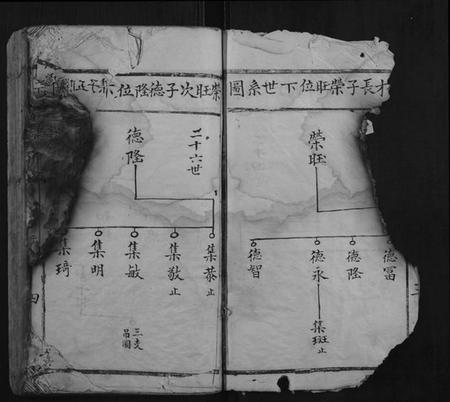 才長子榮旺位下世系圖
榮旺
德冨
德隆
德永
集斑止
德智
榮旺次子德隆位下
二十六世
德隆
集恭止
集敬止
集敏
集明
集琦
三支
呂圖
四